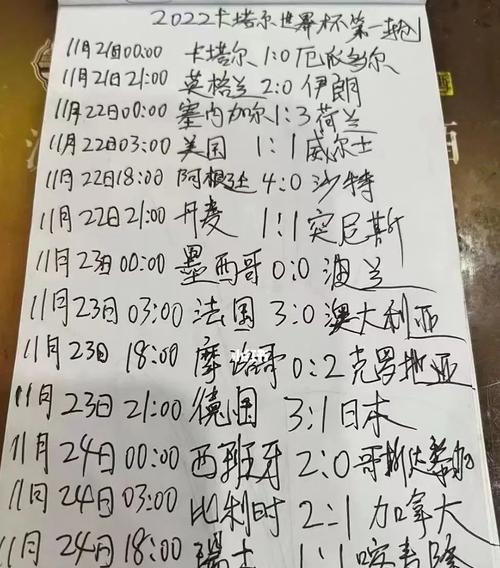 2022卡塔尔世界杯第一轮
11月21日00:00 卡塔尔 1:0 厄瓜多尔
11月21日21:00 英格兰 2:0 伊朗
11月22日00:00 塞内加尔 1:3 荷兰
11月22日03:00 美国 1:1 威尔士
11月22日18:00 阿根廷 4:0 沙特
11月22日21:00 丹麦 1:1 突尼斯
11月23日00:00 墨西哥 0:0 波兰
11月23日03:00 法国 3:0 澳大利亚
11月23日18:00 摩洛哥 0:2 克罗地亚
11月23日21:00 德国 3:1 日本
11月24日00:00 西班牙 2:0 哥斯达黎加
11月24日03:00 比利时 2:1 加拿大
11月24日18:00 瑞士 1:1 喀麦隆